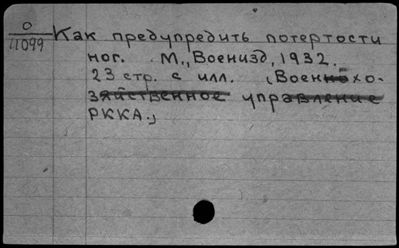 О
11099
Как предупредить потертости
ног. М., Военизд, 1932.
23 стр. с илл. (Воен̶н̶о̶хо-
з̶я̶й̶с̶т̶в̶е̶н̶н̶о̶е̶ упра̶в̶л̶е̶н̶и̶е̶
РККА.)